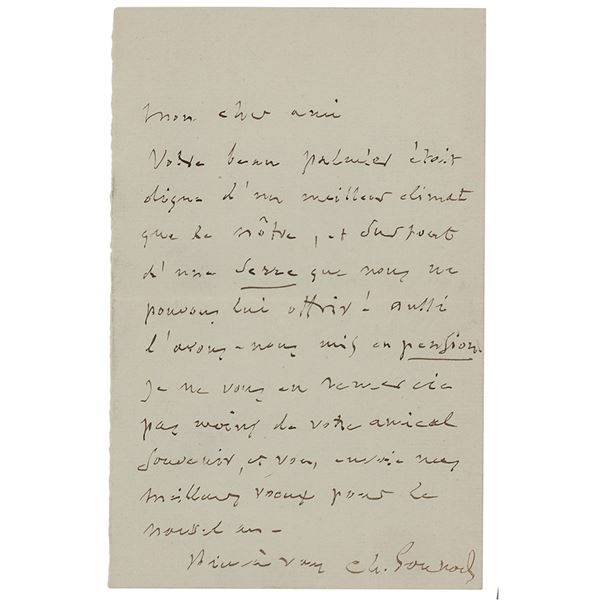 Mon cher ami
Votre beau palmier était
digne d'un meilleur climat
que le nôtre, et surtout
d'une serre que nous ne
pouvons lui offrir! aussi
l'avons-nous mis en pension.
Je ne vous en remercie
pas moins de votre amical
souvenir, et vous envoie mes
meilleurs voeux pour le
nouvel an -
bien à vous Ch. Gounod